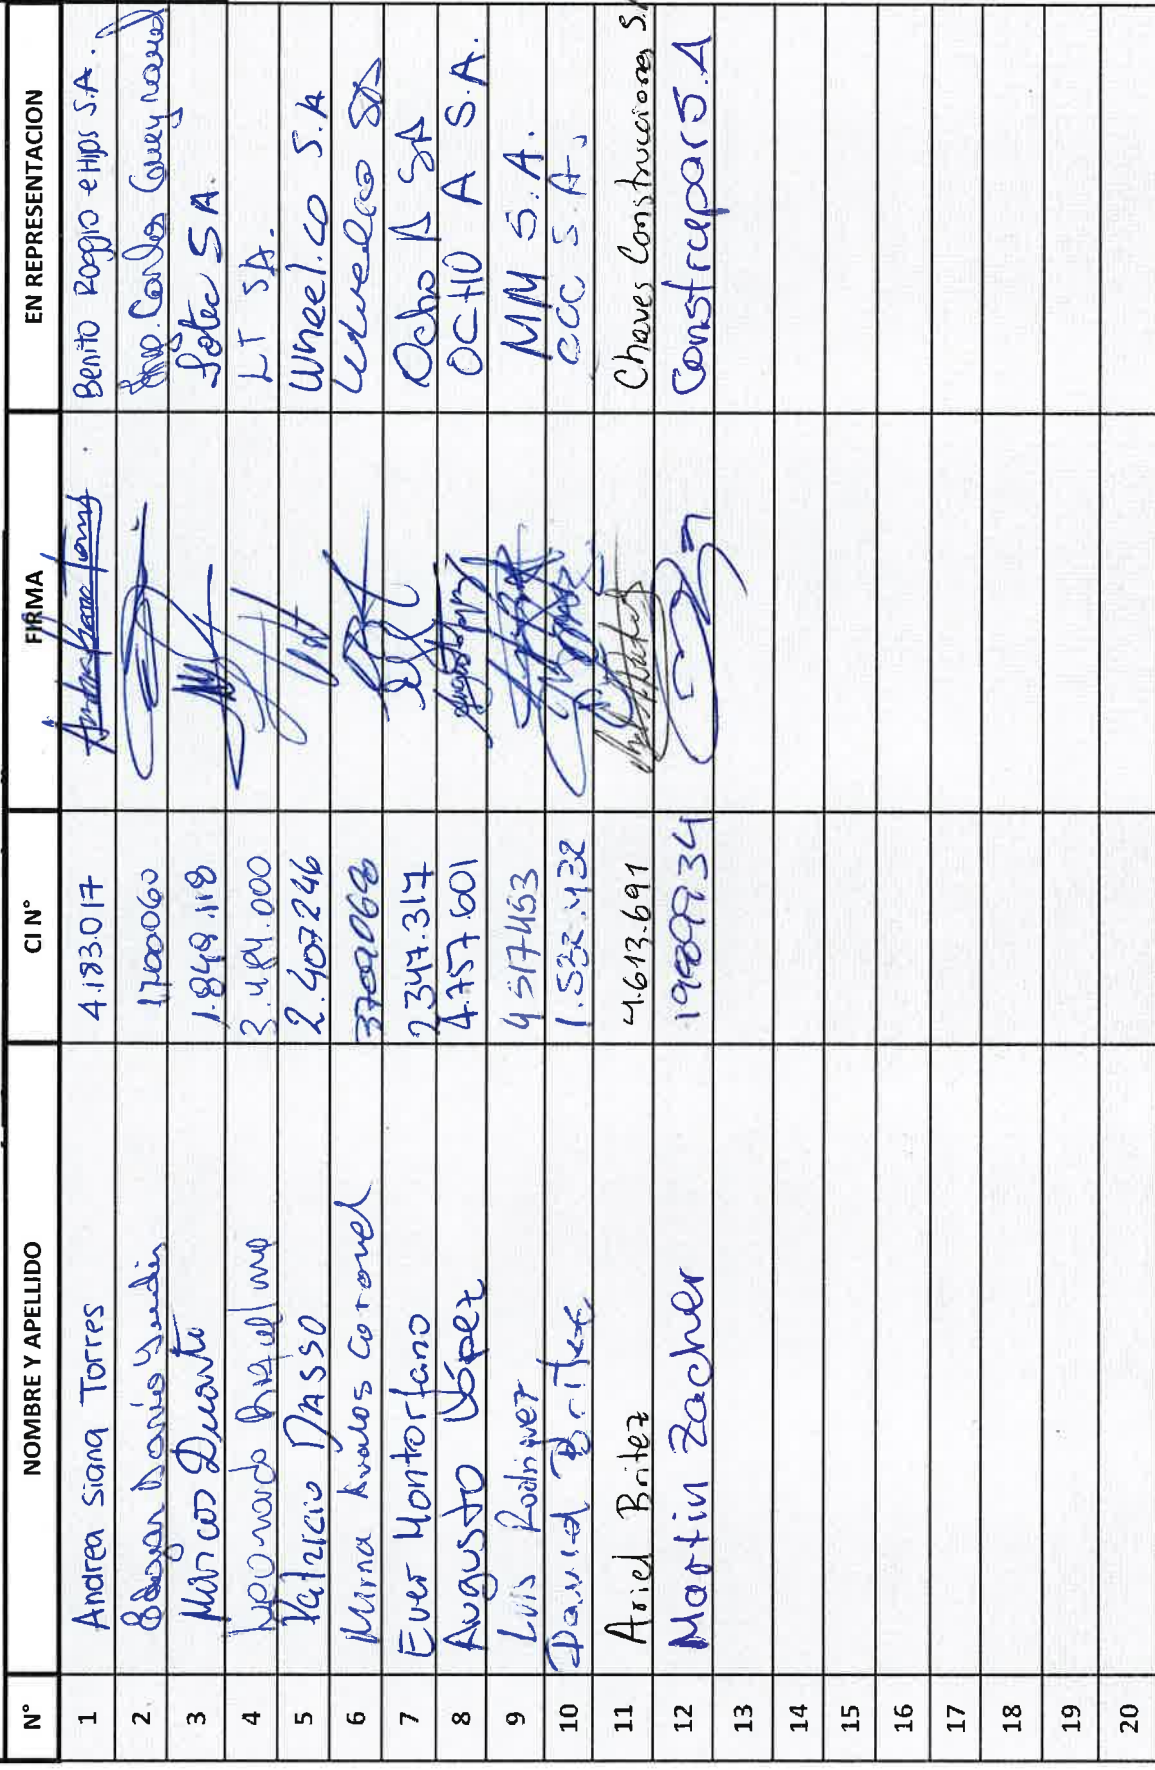 N° NOMBRE Y APELLIDO CI N° FIRMA EN REPRESENTACION
1 Andrea Siana Torres 4.183.017 Benito Roggio e Hijos S.A.
2 1700060 Ing. Carlos
3 Marcos Duarte 1.849.118 Sotec S.A.
4 Leonardo 3.484.000 LT SA.
5 Patricio Masso 2.407246 Wheel.co S.A
6 Mirna Avalos Coronel Wheelco SA
7 Ever Montorfano 2347.317 Ocho A SA
8 Augusto López 4.757.601 OCHO A S.A.
9 Luis Rodriguez 4517453 MM S.A.
10 David Britez 1.532.432 CCC S.A.
11 Ariel Britez 4.613.691 Chaves Construcciones S.A
12 Martin Zacher 1989734 Construpar S.A
13
14
15
16
17
18
19
20